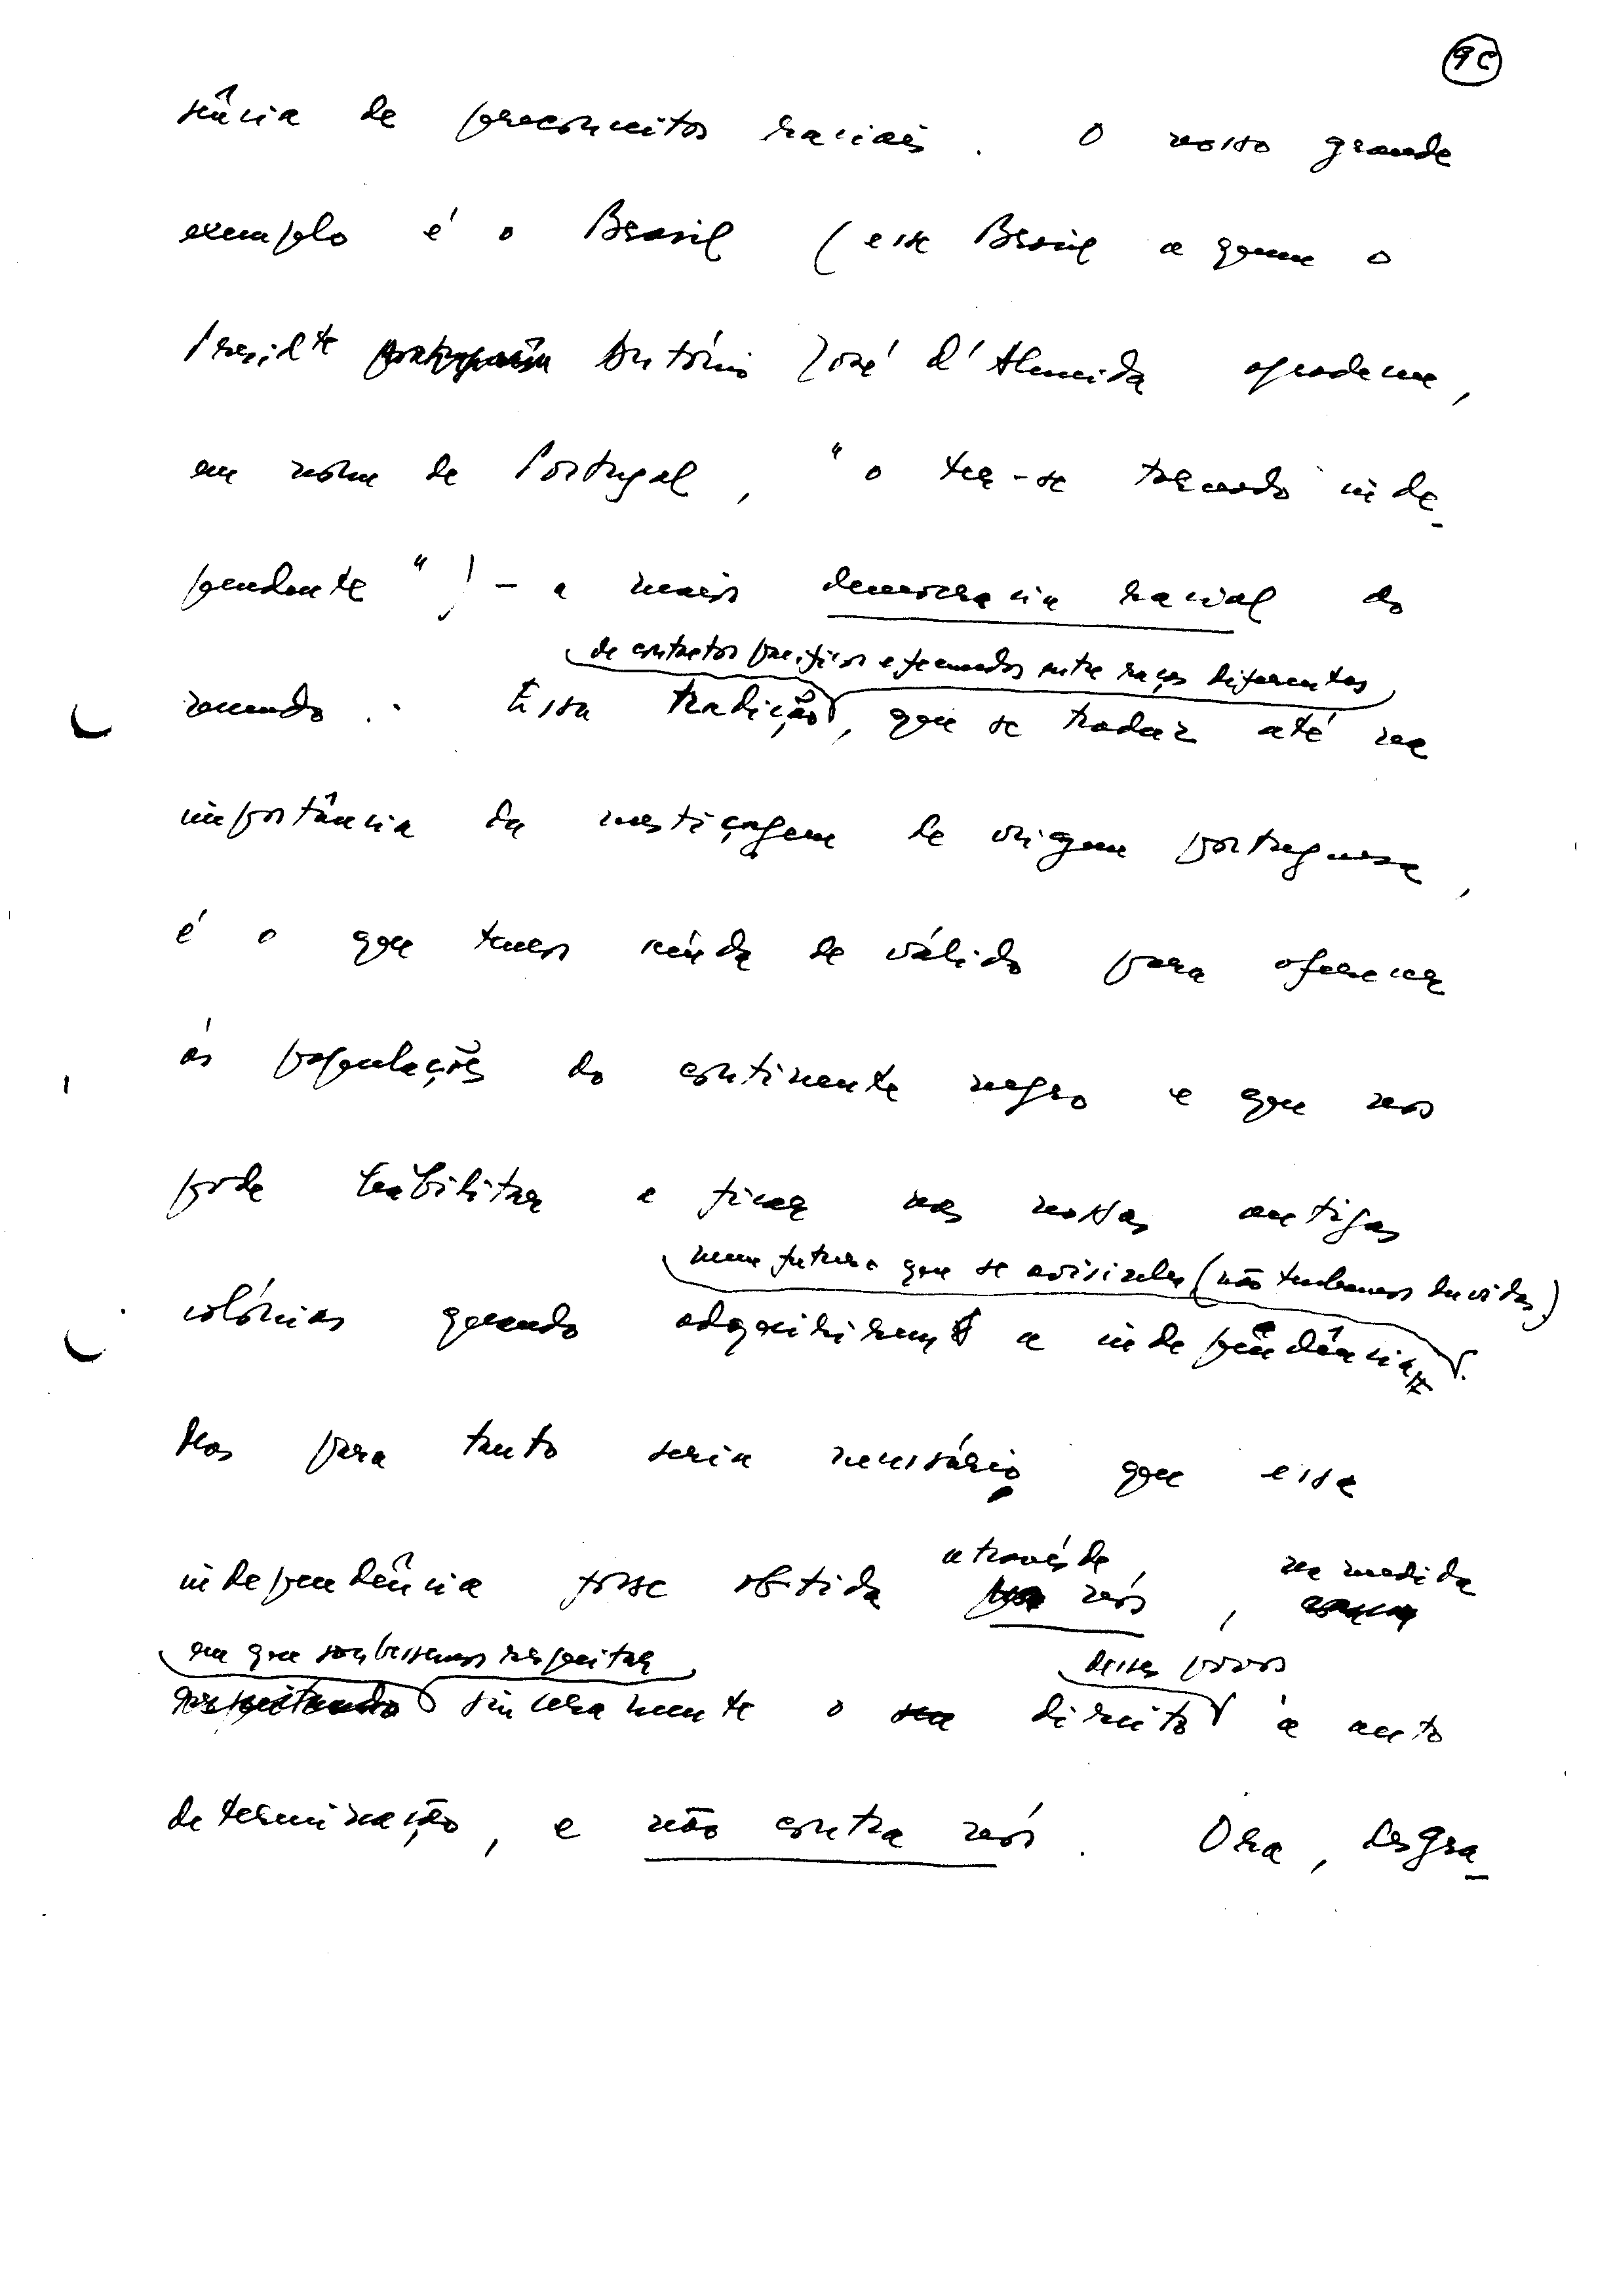 9C
sência de preconceitos raciais. O nosso grande
exemplo é o Brasil (esse Brasil a quem o
Presidte António José d'Almeida agradeceu,
em nome de Portugal, "o ter-se tornado inde-
pendente") - a maior democracia racial do
de contactos pacíficos e fecundos entre raças diferentes
mundo. Essa tradição, que se traduz até na
importância da mestiçagem de origem portuguesa,
é o que temos ainda de válido para oferecer
às populações do continente negro e que nos
pode habilitar a ficar nas nossas antigas
num futuro que se avisinha (não tenhamos duvidas)
colónias quando adquirirem a independência.
Mas para tanto seria necessário que essa
através de na medida
independência fosse obtida nós,
em que soubessemos respeitar desses povos
respeitando sinceramente o seu direito à auto
determinação, e não contra nós. Ora, desgra-